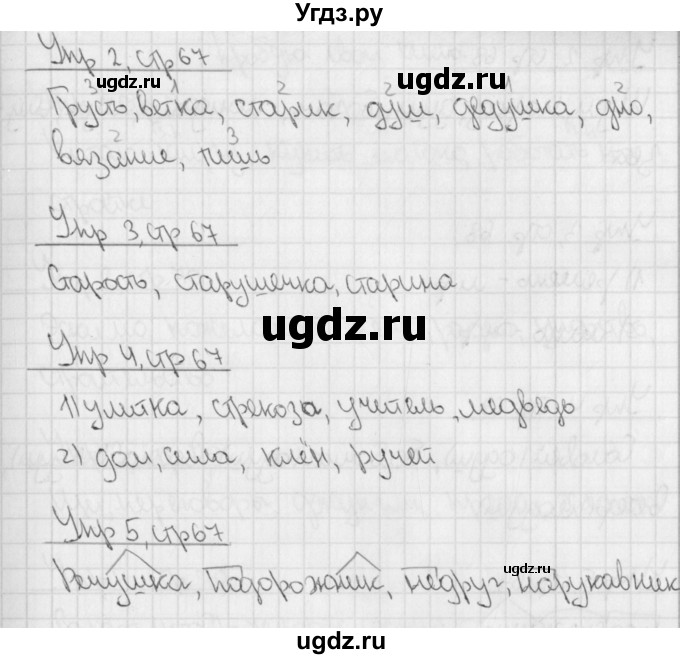 Угдз.ру
Упр 2, стр 67
ugdz.ru ugdz.ru
3 1 2 2 1 2
Грусть, ветка, старик, душ, дедушка, дно,
2 3
вязание, тишь
Упр 3, стр 67
Старость, старушечка, старина
ugdz.ru ugdz.ru
Упр 4, стр 67
1) улитка, стрекоза, учитель, медведь
2) дом, сила, клён, ручей
Упр 5, стр 67
ugdz.ru
подорожник, недруг, нарукавник
ugdz.ru